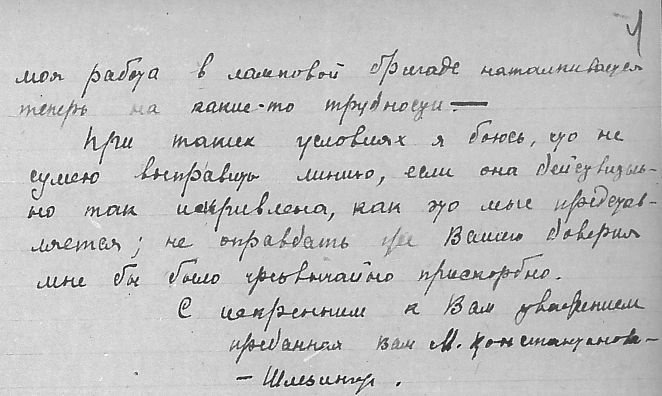 4
моя работа в ламповой бригаде наталкивается
теперь на какие-то трудности. —
При таких условиях я боюсь, что не
сумею выправить линию, если она действитель-
но так искривлена, как это мне представ-
ляется; не оправдать же Вашего доверия
мне бы было чрезвычайно прискорбно.
С искренним к Вам уважением
преданная Вам М. Константинова-
- Шлезингер.